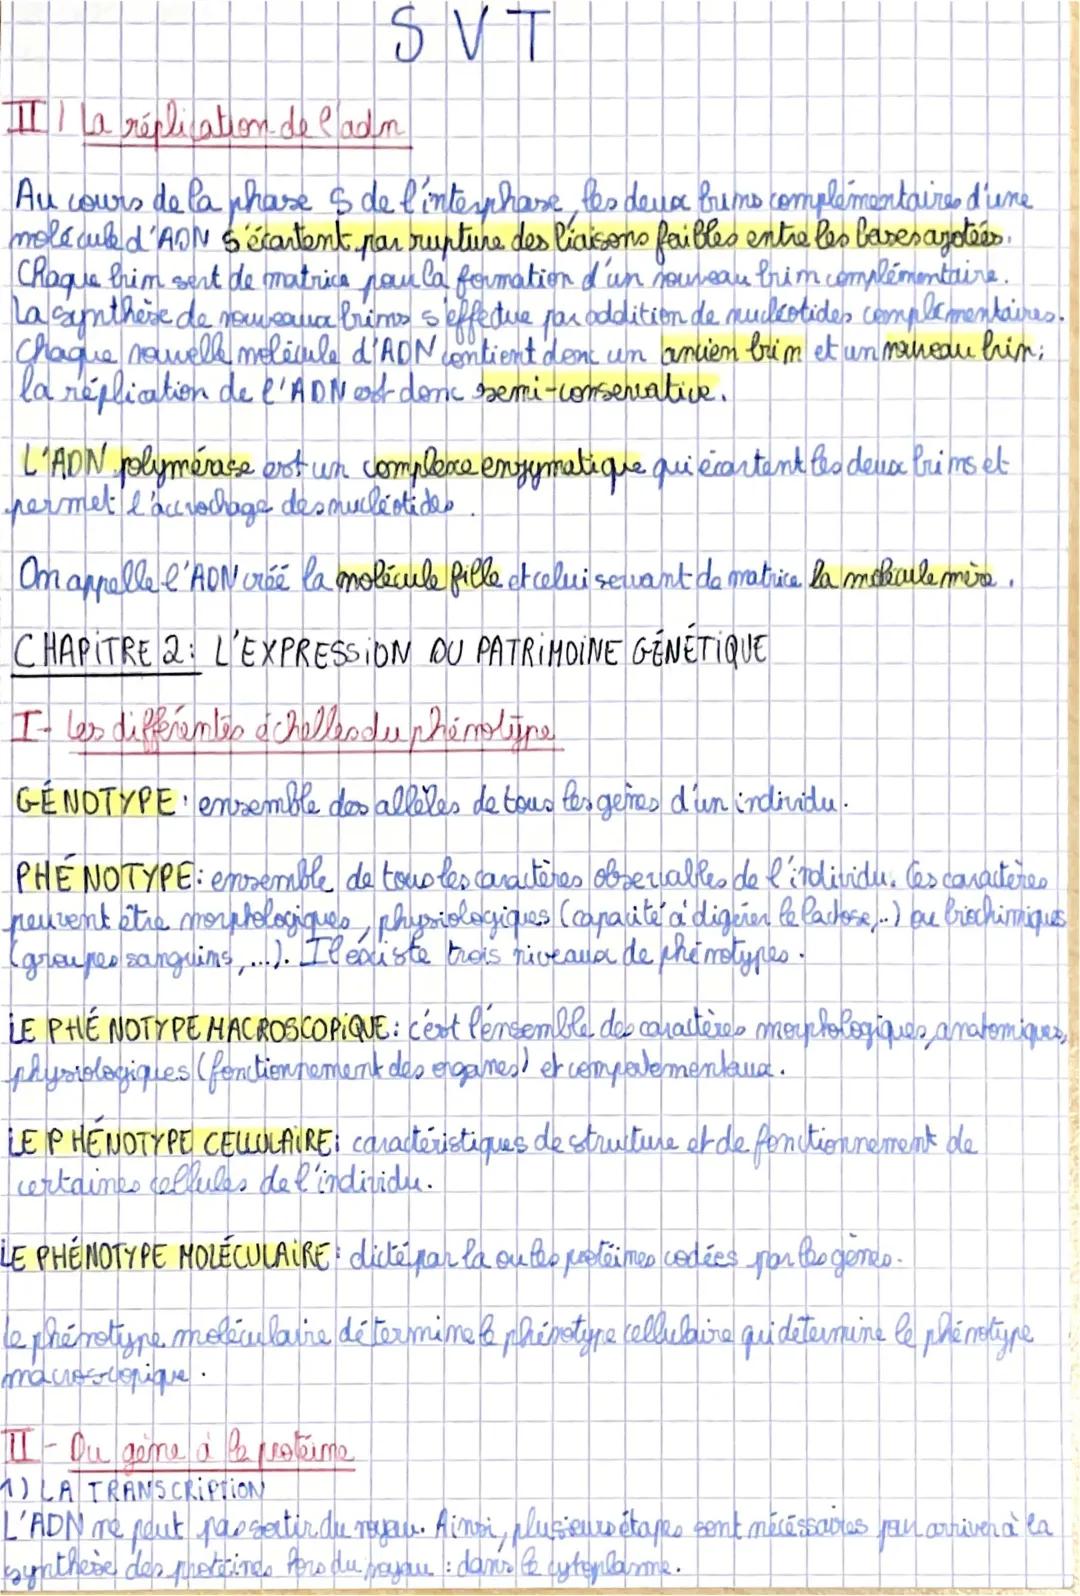 SVT
II / La réplication de l'adn
Au cours de la phase S de l'interphase, les deux brins complémentaires d'une
molécule d'ADN s'écartent par rupture des liaisons faibles entre les bases azotées.
Chaque brin sert de matrice pour la formation d'un nouveau brin complémentaire.
La synthèse de nouveaux brins s'effectue par addition de nucléotides complémentaires.
Chaque nouvelle molécule d'ADN contient donc un ancien brin et un nouveau brin;
la réplication de l'ADN est donc semi-conservative.
L'ADN polymérase est un complexe enzymatique qui écartent les deux brins et
permet l'accrochage des nucléotides.
On appelle l'ADN créé la molécule fille et celui servant de matrice la molécule mère.
CHAPITRE 2: L'EXPRESSION DU PATRIMOINE GÉNÉTIQUE
I- Les différentes échelles du phénotype
GÉNOTYPE: ensemble des allèles de tous les gènes d'un individu.
PHÉNOTYPE: ensemble de tous les caractères observables de l'individu. Ces caractères
peuvent être morphologiques, physiologiques (capacité à digérer le lactose,..) ou biochimiques
(groupes sanguins,...). Il existe trois niveaux de phénotypes.
LE PHÉNOTYPE MACROSCOPIQUE: c'est l'ensemble des caractères morphologiques, anatomiques,
physiologiques (fonctionnement des organes) et comportementaux.
LE PHÉNOTYPE CELLULAIRE: caractéristiques de structure et de fonctionnement de
certaines cellules de l'individu.
LE PHÉNOTYPE MOLÉCULAIRE: dicté par la ou les protéines codées par les gènes.
Le phénotype moléculaire détermine le phénotype cellulaire qui détermine le phénotype
macroscopique.
II - Du gène à la protéine
1) LA TRANSCRIPTION
L'ADN ne peut pas sortir du noyau. Ainsi, plusieurs étapes sont nécessaires pour arriver à la
synthèse des protéines hors du noyau : dans le cytoplasme.